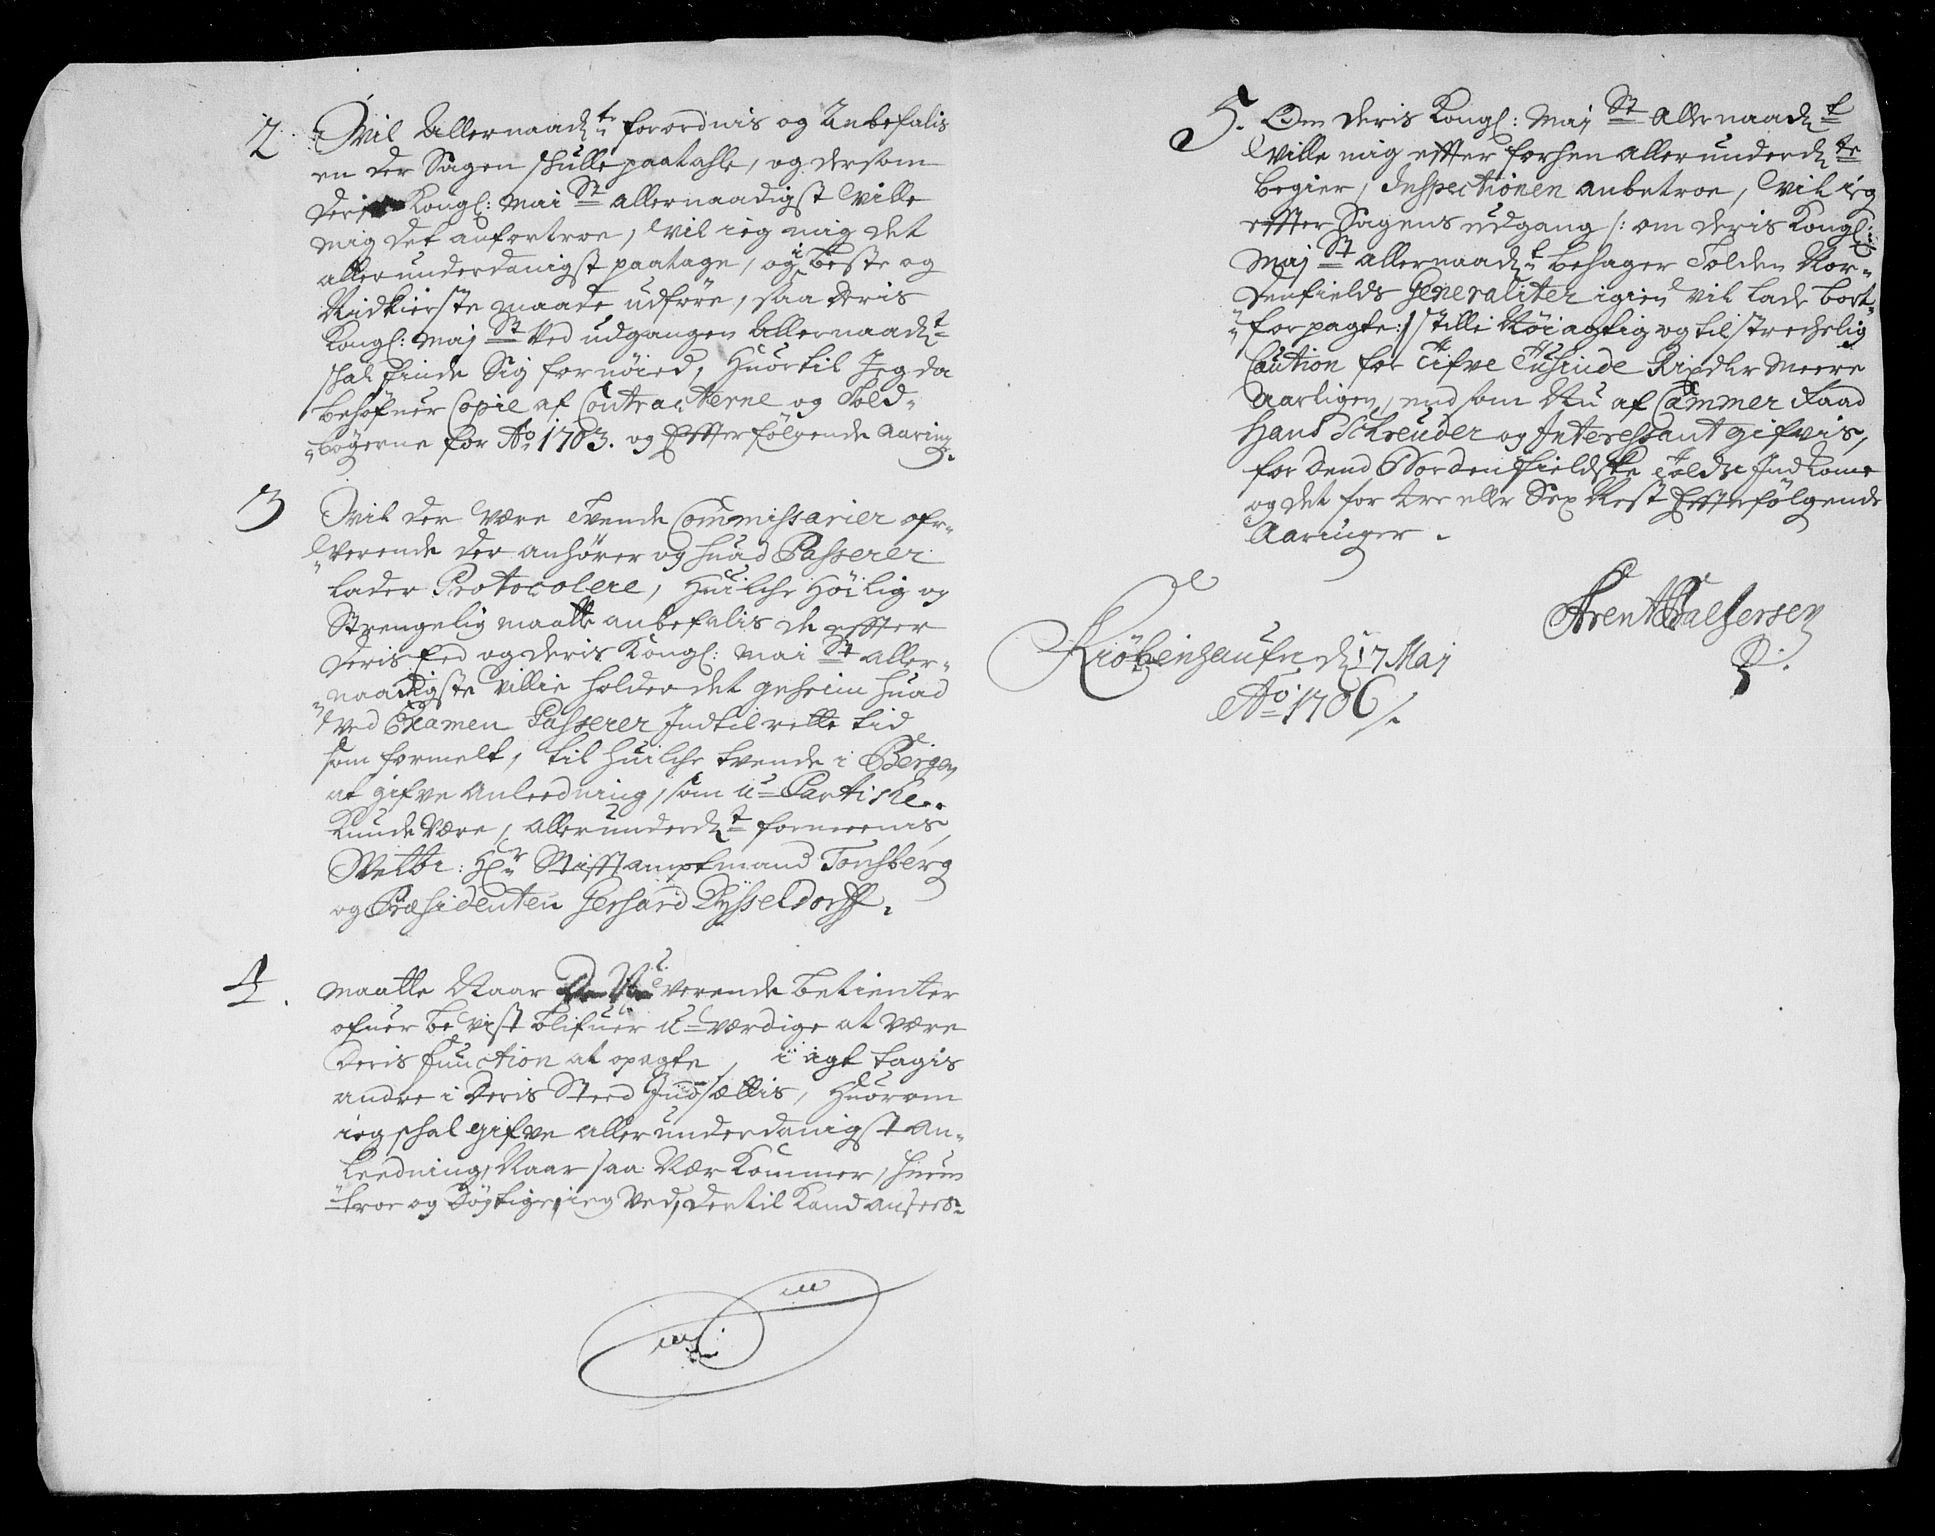 2. Vil Allernaadte forordnis og Anbefalis
en der Sagen skulle paatahle, og dersom
Deris Kongl: Mai St allernaadigst Ville
mig det anfortroe, Vil ieg mig det
allerunderdanigst paatage, og i beste og
Nidkierste maade udføre, saa Deris
Kongl: Maj St Ved udgangen Allernaadt
skal finde Sig fornøied, Huortil Jeg da
behøfuer Copie af Contracterne og Told-
bøgerne for Ao 1703. og Effterfølgende Aaring.
3 Vil der Være Tvende Commissarier ofr-
Verende der anhører og huad Passerer
lader Protocolere, Huilche Høilig og
Strengelig maatte anbefalis de effter
Deris Eed og Deris Kongl: Mai St aller-
naadigste Villie holder det geheim huad
Ved Examen Passerer Indtil rette tid
som formelt, til huilche tvende i Bergen
at gifve Anleedning, som u-Partiske
Kunde Være, allerunderdt formeenis,
Welbr: Hr Stifftamptmand Tonsberg
og Præsidenten Gerhard Dysseldorff.
4. Maatte Naar De Nu Verende betienter
ofuer beVist blifuer u-værdige at være
Deris function at opagte, i igt tagis
andre i Deris Sted Indsættis, Huorom
ieg skal gifve allerunderdanigst An-
leedning, Naar saa Nær Kommer, huem
troe og Døgtige, ieg Ved, dertil Kand ansees.
5. Om Deris Kongl: Maj St Allernaadt
Ville mig effter forhen allerunderdte
begier, Inspectionen anbetroe, Vil ieg
effter Sagens udgang /: om Deris Kongl:
Maj St allernaadt behager Tolden Nor-
denfields Generaliter igien Vil lade bort-
forpagte :/ stille Nøiagtig og tilstrechelig
Caution for Tifve Tusinde Rixdlr Meere
Aarligen, end som Nu af Cammer Raad
Hans Schreuder og Interessant gifvis,
for dend Nordenfieldske Told Indkome
og det for tre eller Sex Nest Effterfølgende
Aaringer.
Kiøbenhaufn d 17 Maj
Ao 1706
Arent Balsersen